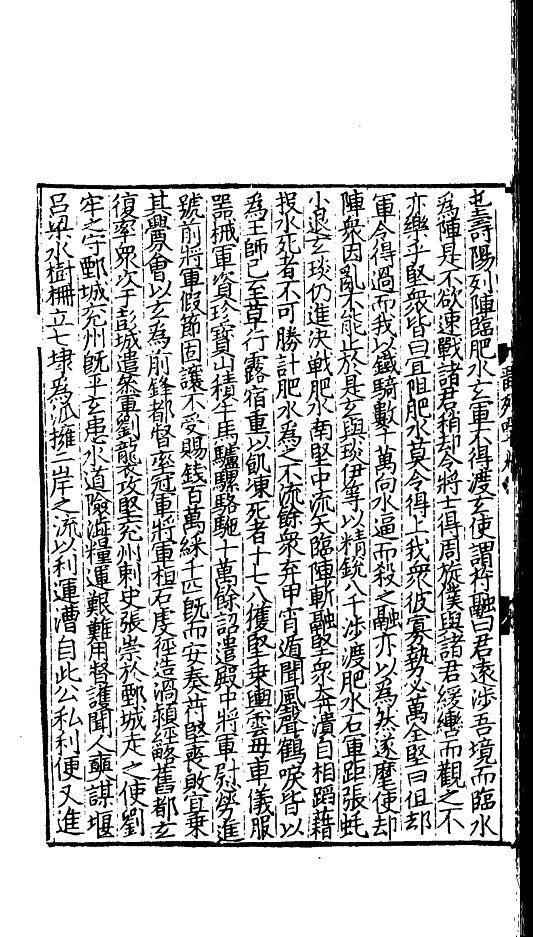 屯壽陽列陣臨肥水玄軍不得渡玄使謂苻融曰君遠涉吾境而臨水
為陣是不欲速戰諸君稍却令將士得周旋僕與諸君緩轡而觀之不
亦樂乎堅衆皆曰且阻肥水莫令得上我衆彼寡勢必萬全堅曰但却
軍令得過而我以鐵騎數十萬向水逼而殺之融亦以為然遂麾使却
陣衆因亂不能止於是玄與琰伊等以精銳八千涉渡肥水石軍距張蚝
小退玄琰仍進決戰肥水南堅中流矢臨陣斬融堅衆奔潰自相蹈藉
投水死者不可勝計肥水為之不流餘衆弃甲宵遁聞風聲鶴唳皆以
為王師已至草行露宿重以飢凍死者十七八獲堅乘輿雲毋車儀服
器械軍資珍寶山積牛馬驢騾駱駞十萬餘詔遣殿中將軍慰勞進
號前將軍假節固讓不受賜錢百萬綵千匹旣而安奏苻堅喪敗宜乗
其釁會以玄為前鋒都督率冠軍將軍桓石虔徑造渦潁經略舊都玄
復率眾次于彭城遣叅軍劉襲攻堅兗州刺史張崇於鄄城走之使劉
牢之守鄄城兖州旣平玄患水道險澁糧運艱難用督護聞人奭謀堰
呂梁水樹柵立七埭為泒擁二岸之流以利運漕自此公私利便又進